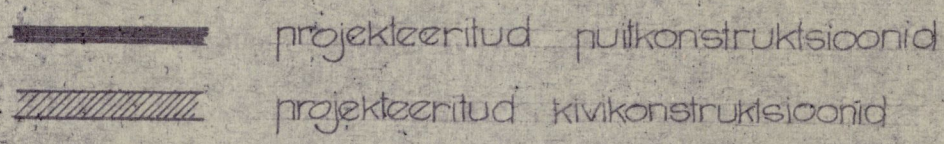 projekteeritud puitkonstruktsioonid
projekteeritud kivikonstruktsioonid